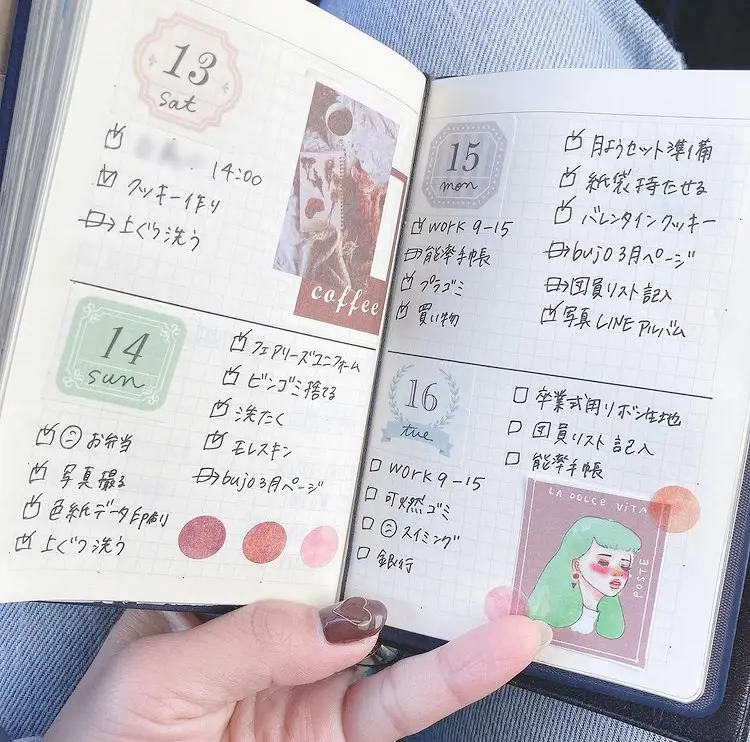 13
Sat
14:00
クッキー作り
上ぐつ洗う
coffee
14
sun
お弁当
写真撮る
色紙データ印刷
上ぐつ洗う
フェアリーズユニフォーム
ビンゴミ捨てる
洗たく
モレスキン
bujo3月ページ
15
mon
work 9-15
能率手帳
プラゴミ
買い物
月ようセット準備
紙袋持たせる
バレンタインクッキー
bujo3月ページ
団員リスト記入
写真LINEアルバム
16
tue
work 9-15
可燃ゴミ
スイミング
銀行
卒業式用リボン生地
団員リスト記入
能率手帳
LA DOLCE VITA
POSTE